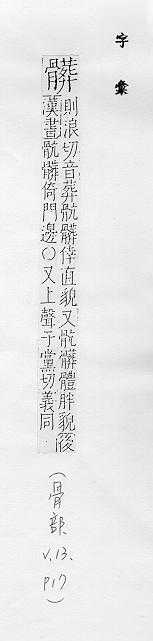 字彙
髒
則浪切音葬骯髒倖直貌又骯髒體胖貌後
漢書骯髒倚門邊○又上聲子黨切義同
(骨部、
V.13.
P17)